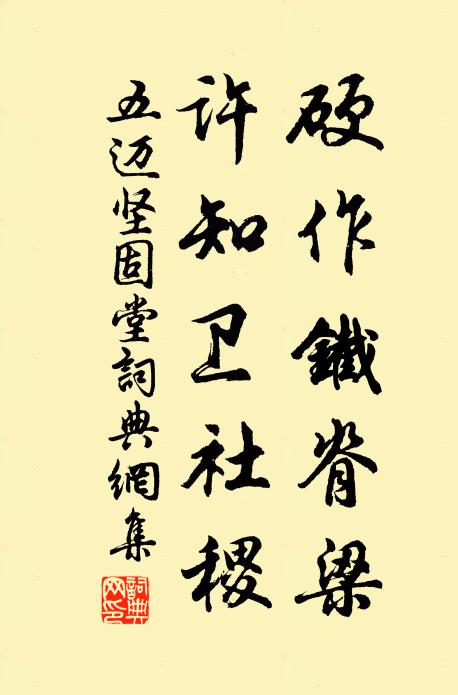 硬作鐵脊梁
许知卫社稷
五迈坚固堂詞典網集
詞典
网印